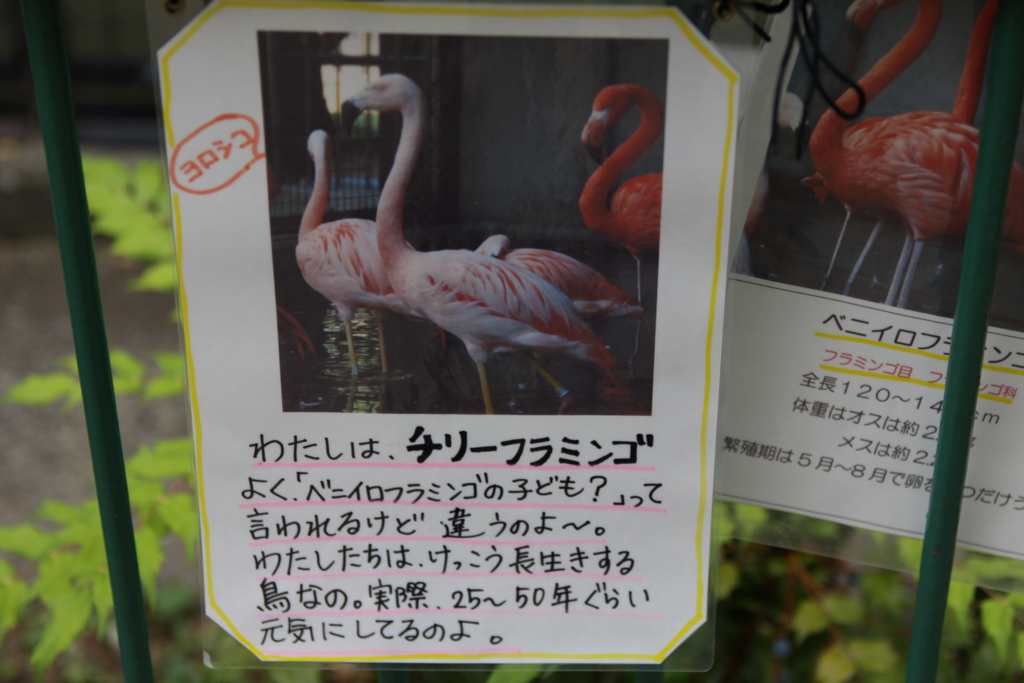 ヨロシコ
わたしは、チリーフラミンゴ
よく、「ベニイロフラミンゴの子ども?」って
言われるけど 違うのよ〜。
わたしたちは、けっこう長生きする
鳥なの。実際、25〜50年ぐらい
元気にしてるのよ。
ベニイロフラミンゴ
フラミンゴ目 フラミンゴ科
全長120〜14 cm
体重はオスは約2.
メスは約2.
繁殖期は5月〜8月で卵を つだけう